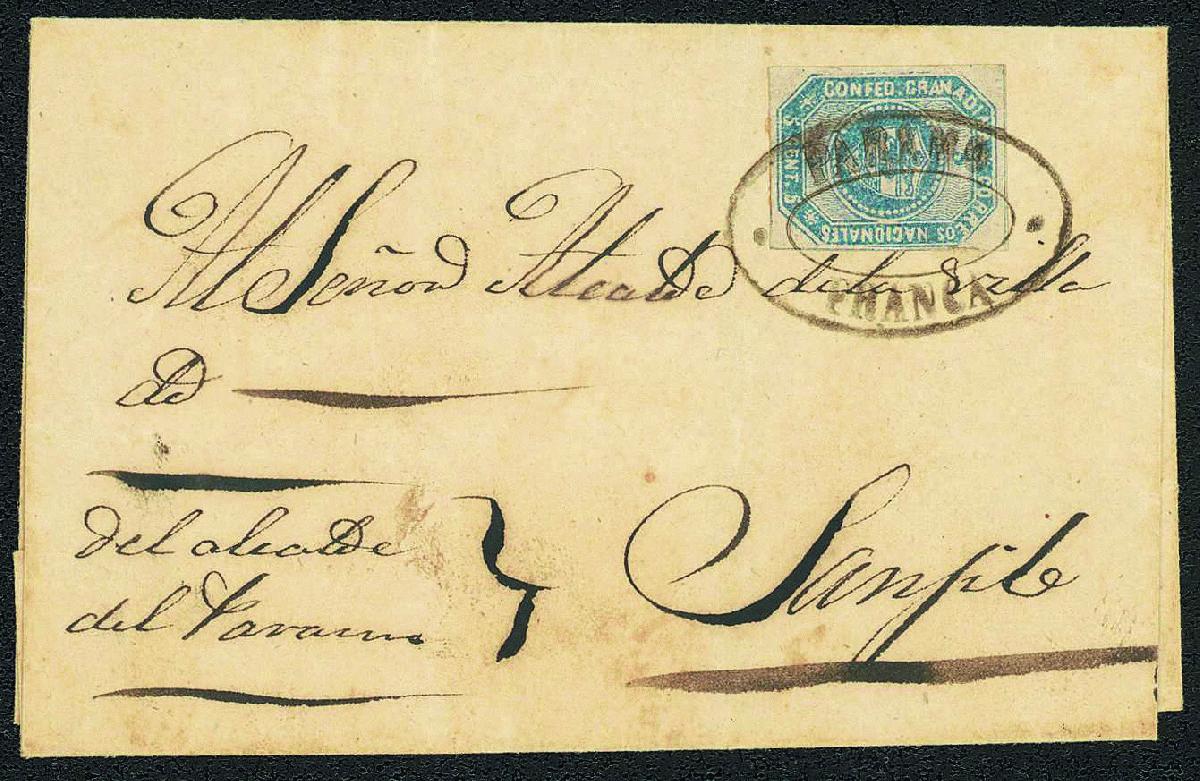 CONFED. GRANADI
CORREOS NACIONALES
5 CENT 5
PARAMO
FRANCA
Al Señor Alcalde de la Villa
de
Sanjil
del alcalde
del Paramo